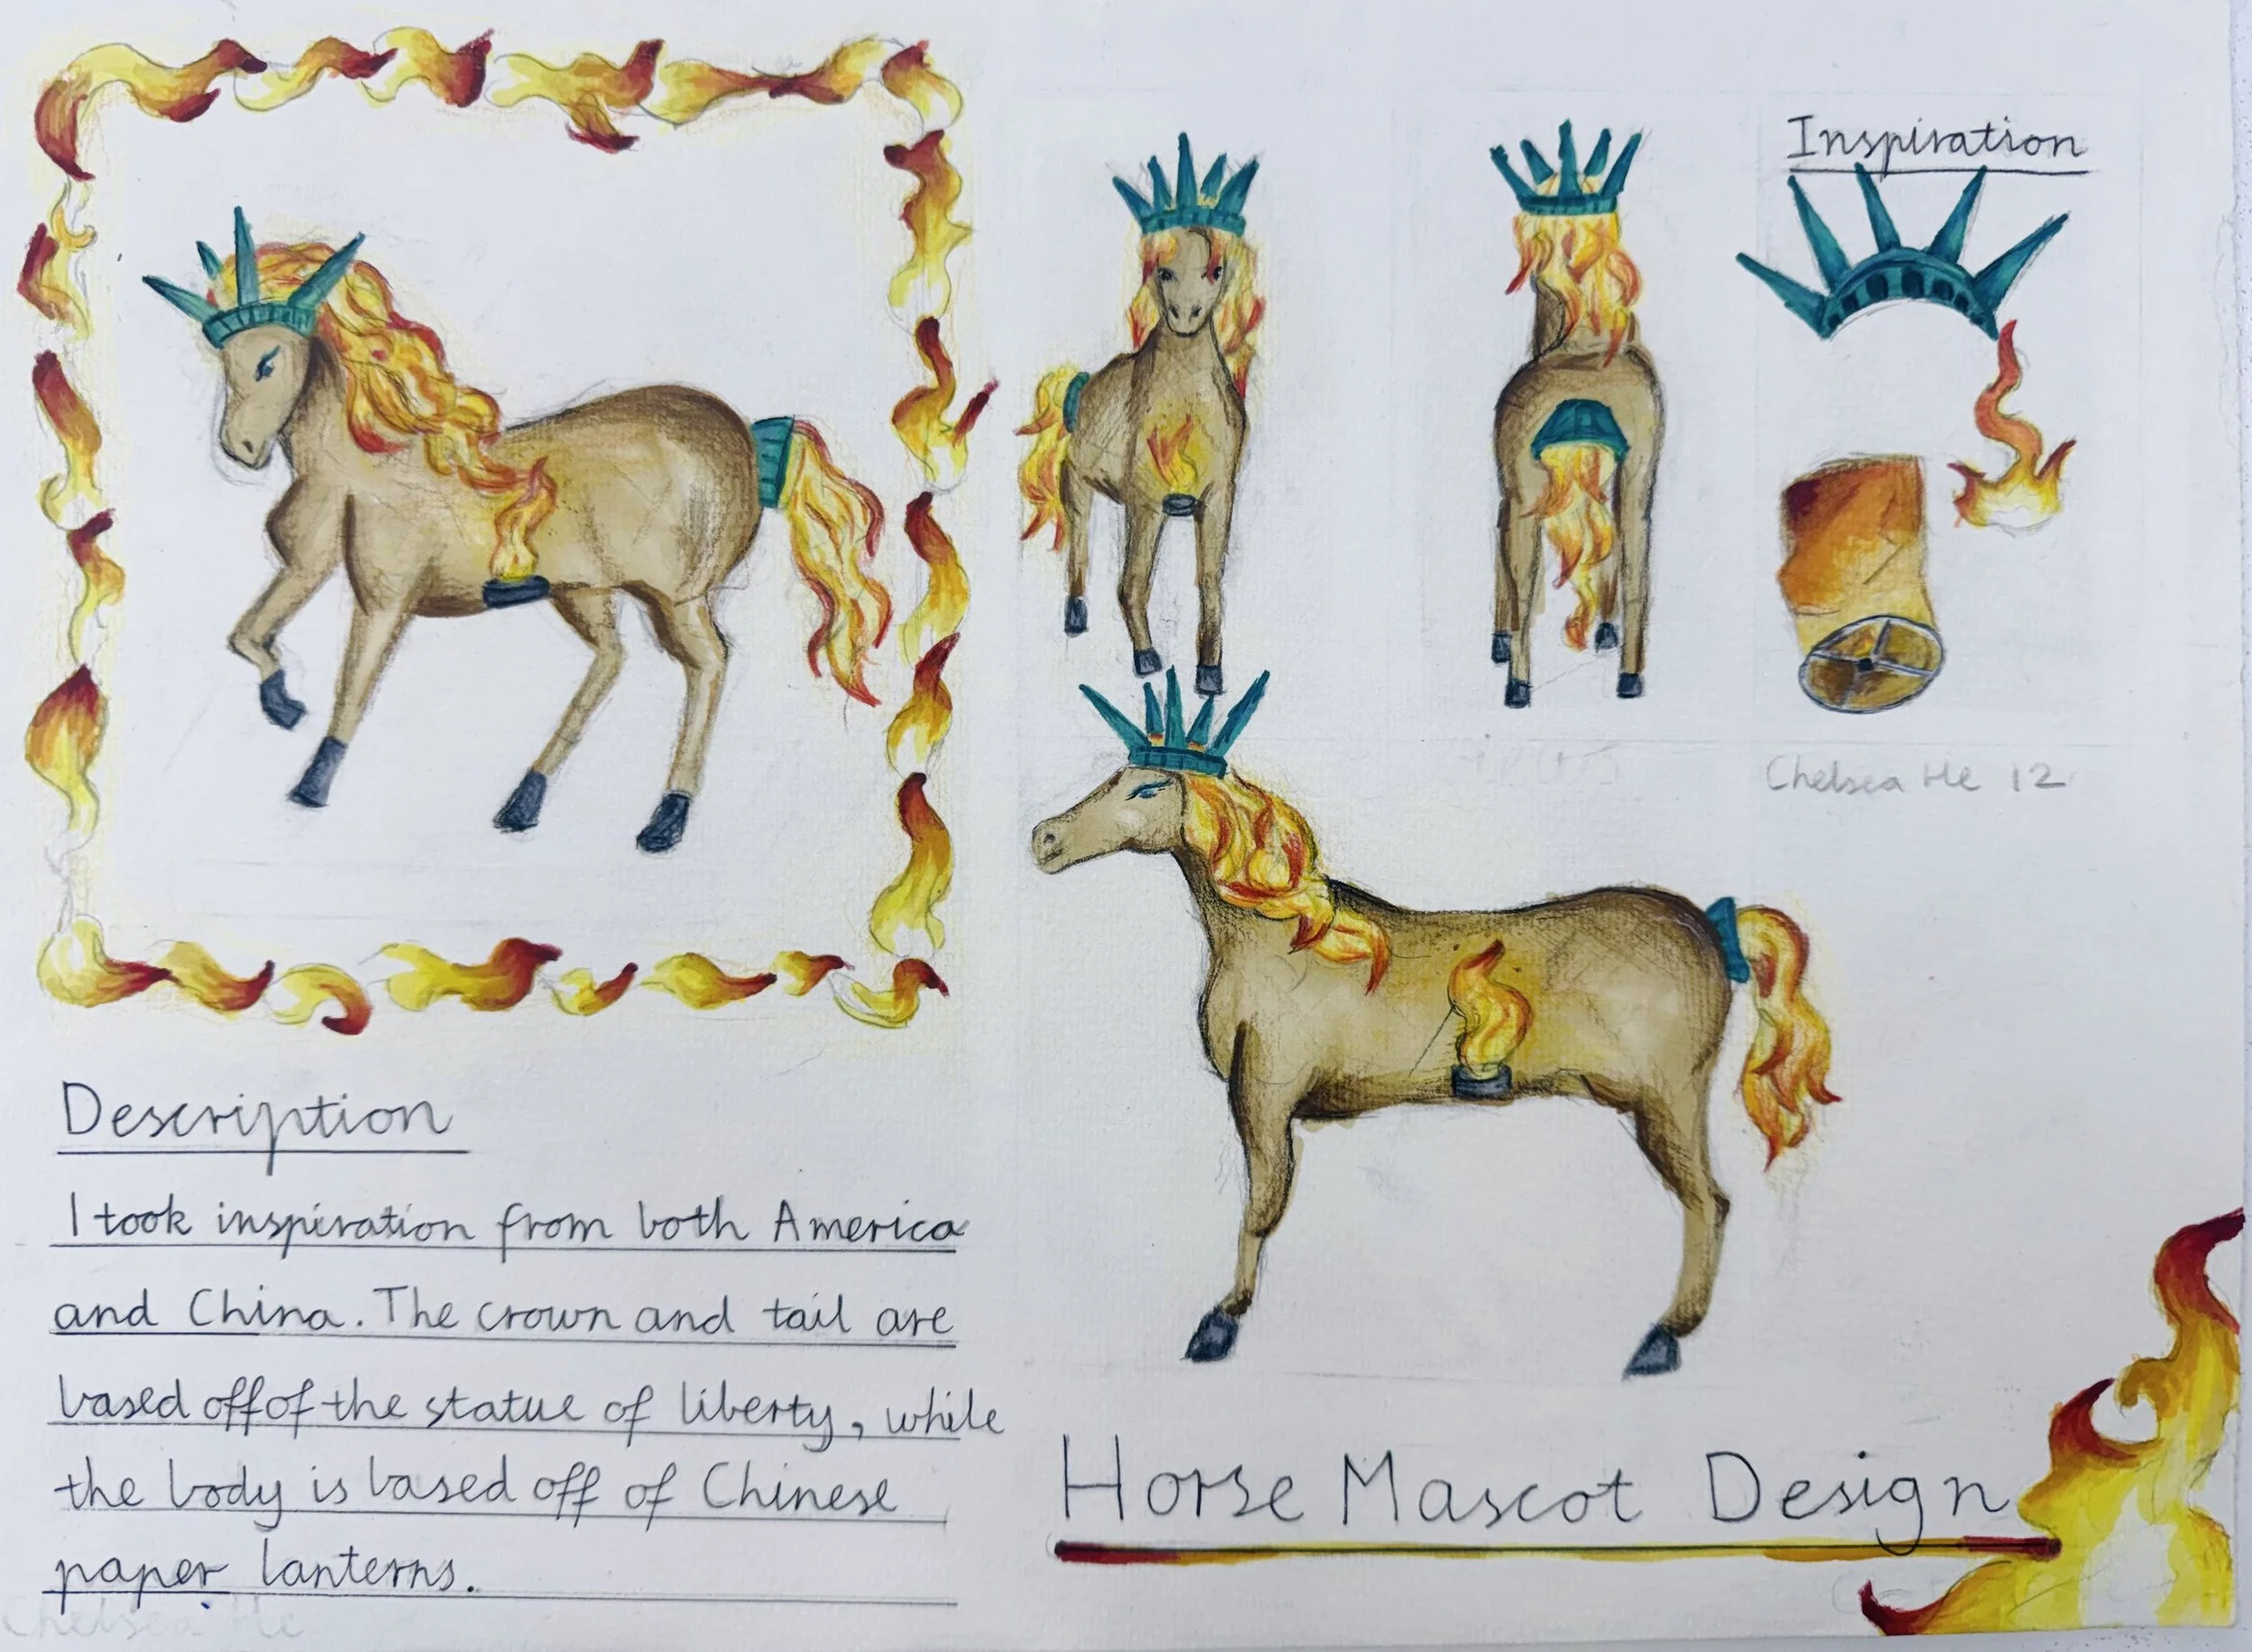 Inspiration
Chelsea He 12
Description
I took inspiration from both America
and China. The crown and tail are
based off of the statue of liberty, while
the body is based off of Chinese
paper lanterns.
Horse Mascot Design
Chelsea He